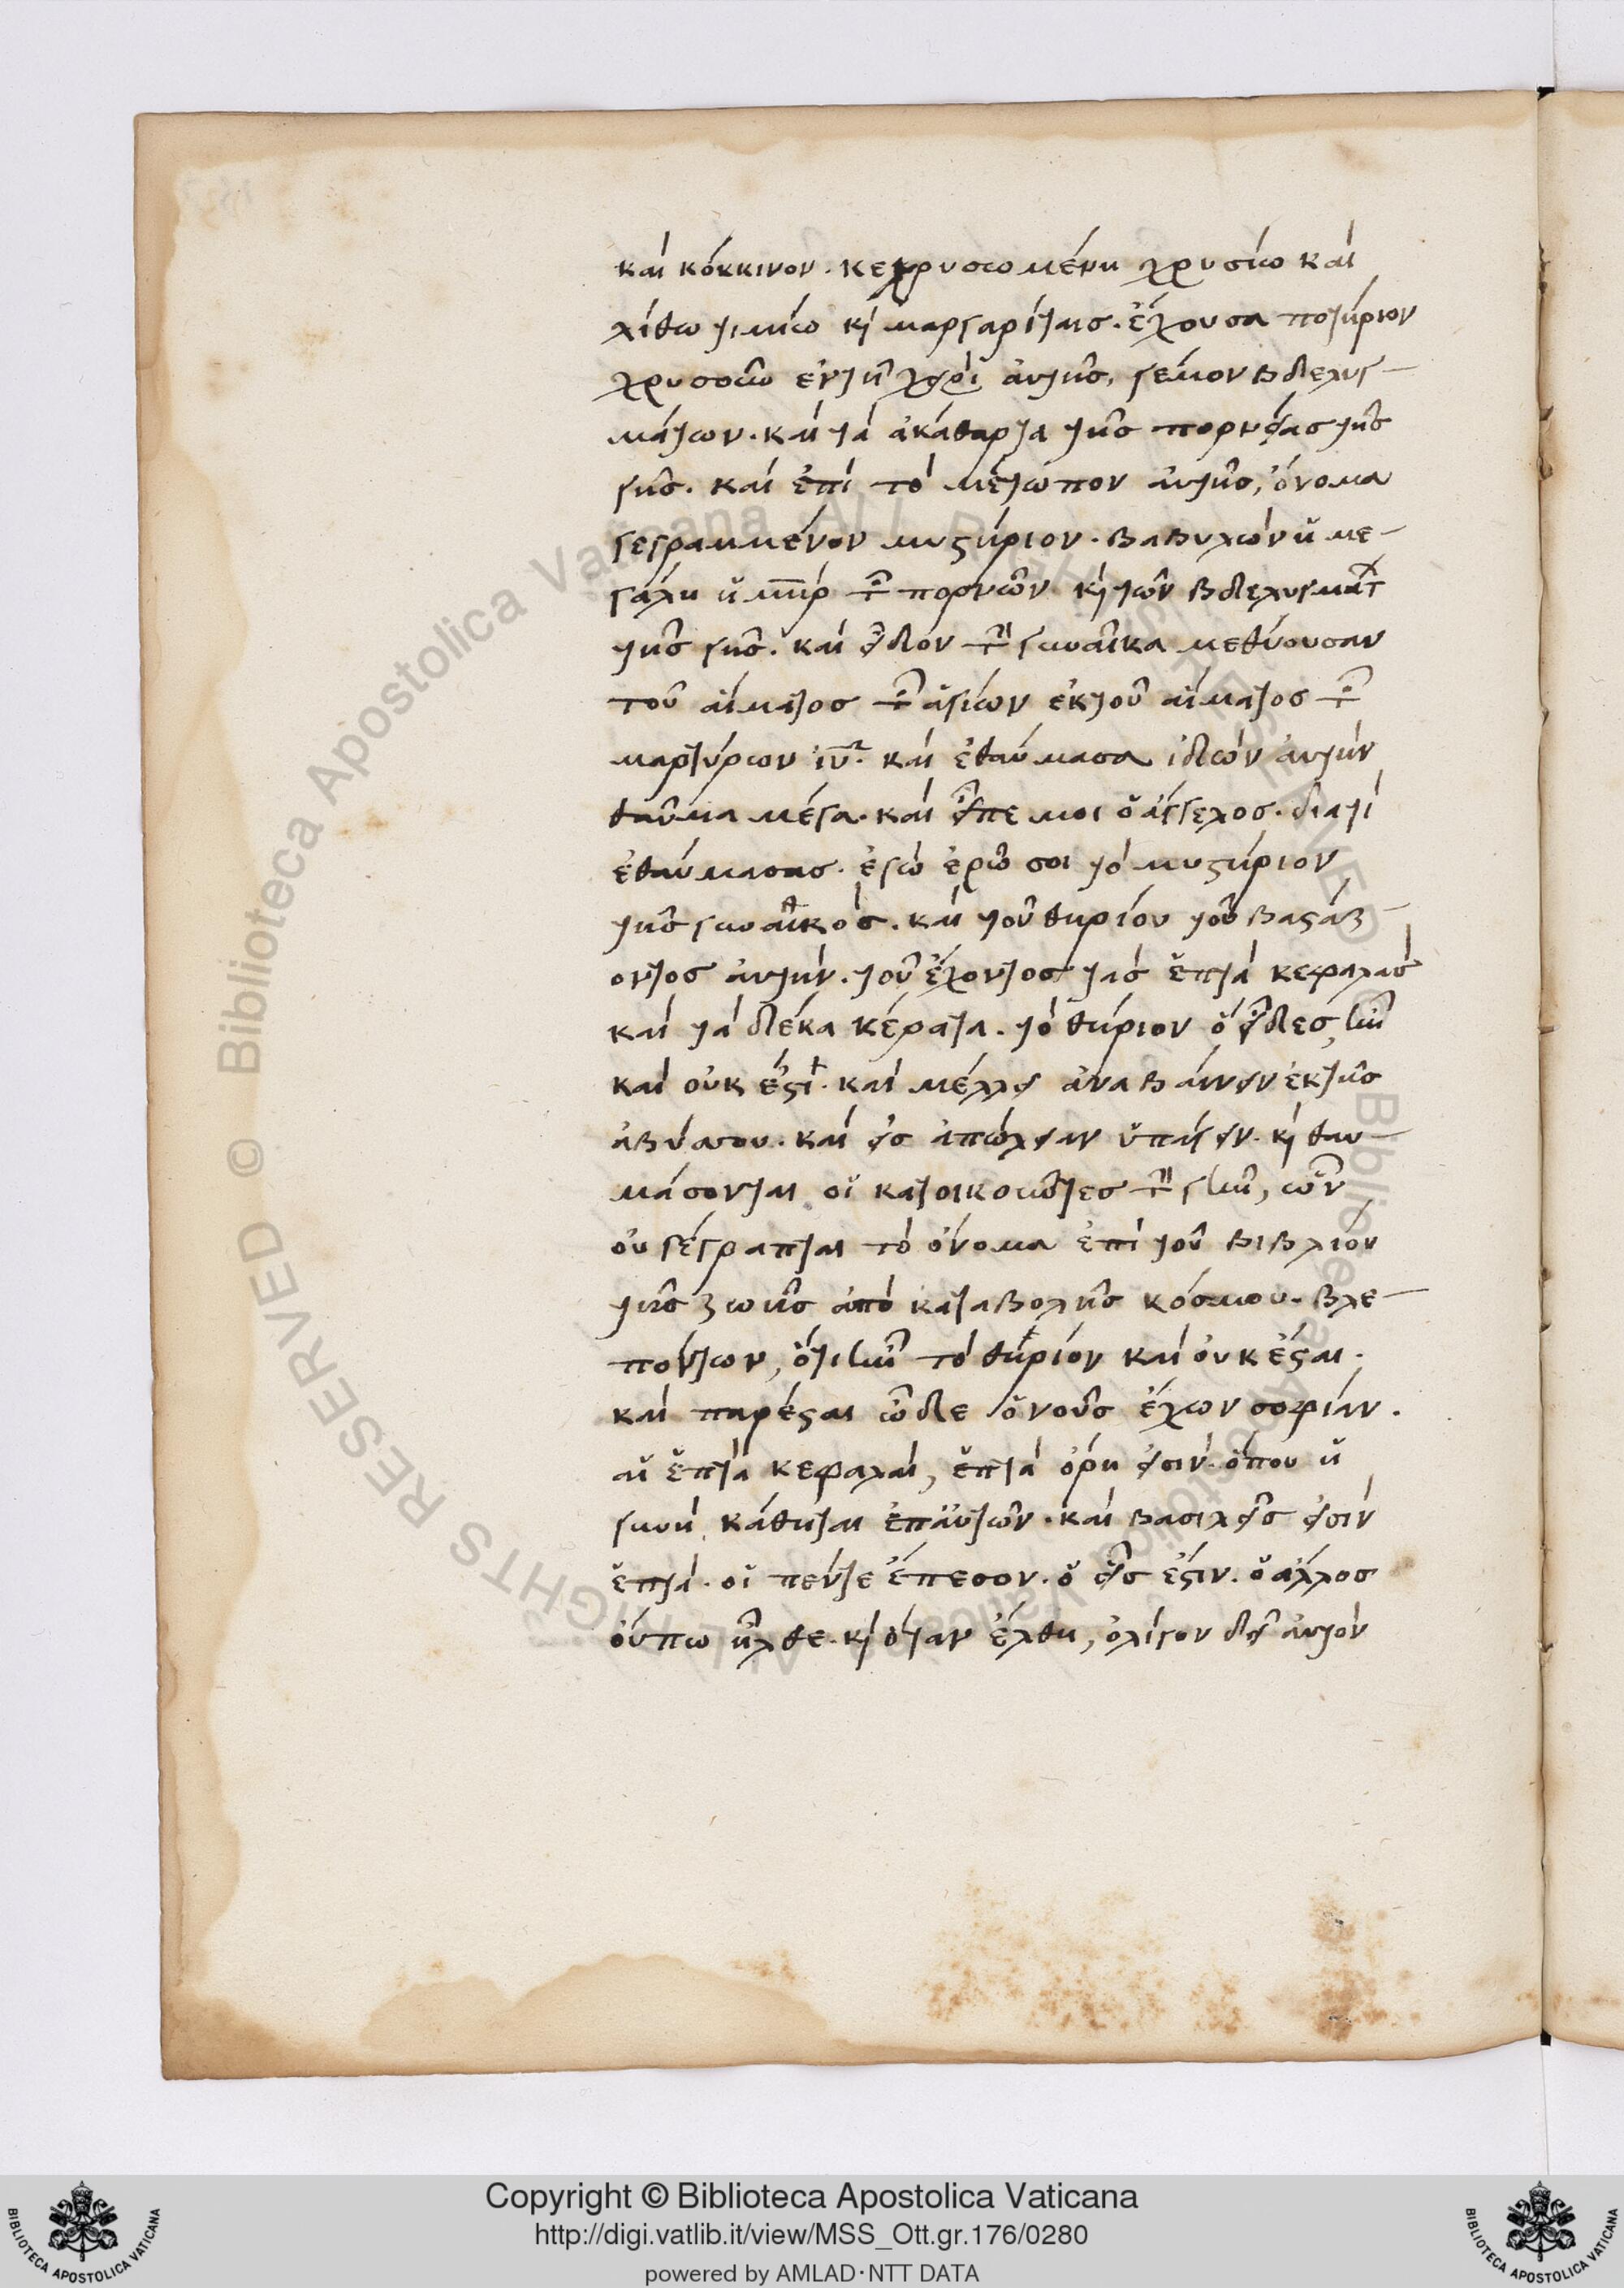 καὶ κόκκινον. κεχρυσωμένη χρυσίω καὶ
λίθω τιμίω κὶ μαργαρίταις. ἔχουσα ποτήριον
χρυσοῦν ἐν τῆ χειρὶ ἀυτῆς, γέμον βδελυγ-
μάτων. καὶ τὰ ἀκάθαρτα τῆς πορνείας τῆς
γῆς. καὶ ἐπὶ τὸ μέτωπον ἀυτῆς, ὄνομα
γεγραμμένον μυστήριον. βαβυλὼν ἡ με-
γάλη ἡ μηρ τῶν πορνῶν κὶ τῶν βδελυγμάτ
τῆς γῆς. καὶ εἶδον τὴν γυναῖκα μεθύουσαν
τοῦ αἵματος τῶν ἁγίων ἐκ τοῦ αἵματος τῶν
μαρτύρων ιυ. καὶ ἐθαύμασα ἰδὼν ἀυτὴν
θαῦμα μέγα. καὶ εἶπε μοι ὁ ἄγγελος. διατί
ἐθαύμασας. ἐγὼ ἐρῶ σοι τὸ μυστήριον
τῆς γυναικὸς. καὶ τοῦ θηρίου τοῦ βαστάζ-
οντος ἀυτὴν. τοῦ ἔχοντος τὰς ἑπτὰ κεφαλὰς
καὶ τὰ δέκα κέρατα. τὸ θήριον ὃ εἶδες, ἦν
καὶ οὐκ ἔστι. καὶ μέλλει ἀναβαίνειν ἐκ τῆς
ἀβύσσου. καὶ εἰς ἀπώλειαν ὑπάγειν. κὶ θαυ-
μάσονται οἱ κατοικοῦντες τὴν γῆν, ὧν
οὐ γέγραπται τὸ ὄνομα ἐπὶ τοῦ βιβλίου
τῆς ζωῆς ἀπὸ καταβολῆς κόσμου. βλε-
πόντων, ὅτι ἦν τὸ θηρίον καὶ ὀυκ ἔσται.
καὶ παρέσται ὧδε ὁ νοῦς ἔχων σοφίαν.
αἱ ἑπτὰ κεφαλαὶ, ἑπτὰ ὄρη εἰσὶν. ὅπου ἡ
γυνὴ κάθηται ἐπ αὐτῶν. καὶ βασιλεῖς εἰσὶν
ἑπτὰ. οἱ πέντε ἔπεσον. ὁ εἷς ἔστιν. ὁ ἄλλος
ὄυπω ἦλθε. κὶ ὅταν ἔλθη, ὀλίγον δεῖ ἀυτὸν
Copyright © Biblioteca Apostolica Vaticana
http://digi.vatlib.it/view/MSS_Ott.gr.176/0280
powered by AMLAD·NTT DATA